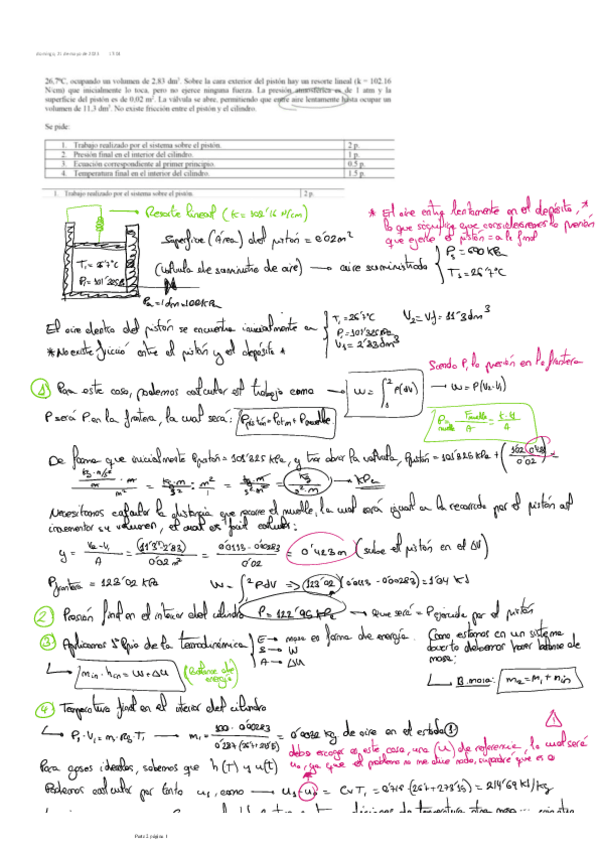 domingo, 21 de mayo de 2023 13:28
26,7ºC, ocupando un volumen de 2,83 dm³. Sobre la cara exterior del pistón hay un resorte lineal (k = 102.16
N/cm) que inicialmente lo toca, pero no ejerce ninguna fuerza. La presión atmosférica es de 1 atm y la
superficie del pistón es de 0,02 m². La válvula se abre, permitiendo que entre aire lentamente hasta ocupar un
volumen de 11,3 dm³. No existe fricción entre el pistón y el cilindro.
Se pide:
1. Trabajo realizado por el sistema sobre el pistón. 2 p.
2. Presión final en el interior del cilindro. 1 p.
3. Ecuación correspondiente al primer principio. 0.5 p.
4. Temperatura final en el interior del cilindro. 1.5 p.
1. Trabajo realizado por el sistema sobre el pistón. 2 p.
Resorte lineal (k = 102'16 N/cm)
* El aire entra lentamente en el depósito, *
lo que significa que consideraremos la presión
que ejerce el pistón = a la final
Superficie (Área) del pistón = 0'02 m²
T₁ = 26'7ºC
P₁ = 101'325
(válvula de suministro de aire) → aire suministrado
T₃ = 26'7ºC
El aire dentro del pistón se encuentra inicialmente en
T₁ = 26'7ºC
P₁ = 101'325 kPa
V₁ = 2'83 dm³
V₂ = Vf = 11'3 dm³
* No existe fricción entre el pistón y el depósito *
Siendo P, la presión en la frontera
① Para este caso, podemos calcular el trabajo como → W = ∫ P(dV) → W = P(V₂-V₁)
P será P en la frontera, la cual será: Ppistón = Patm + Pmuelle
P muelle = Fmuelle/A = k·y/A
De forma que inicialmente Ppistón = 101'325 kPa, y tras abrir la válvula, Ppistón = 101'325 kPa +
Necesitamos calcular la distancia que recorre el muelle, la cual será igual a la recorrida por el pistón al
incrementar su volumen, el cual es fácil calcular:
y = (V₂-V₁)/A = (11'3-2'83)/0'02m² = (0'0113-0'00283)/0'02 = 0'423m (sube el pistón en el ΔV)
Pfrontera = 123'02 kPa W = ∫PdV => (123'02)(0'0113-0'00283) = 1'04 kJ
② Presión final en el interior del cilindro P = 122'96 kPa → que será = P ejercida por el pistón
③ Aplicamos 1er Ppio de la termodinámica
E → masa en forma de energía
S → W
A → ΔU
Como estamos en un sistema
abierto debemos hacer balance de
masa:
→ min·hen = W + ΔU (Balance de energía)
→ B. masa: m₂ = m₁ + min
④ Temperatura final en el interior del cilindro
→ P₁·V₁ = m·Rg·T₁ → m₁ = = 0'0032 kg de aire en el estado ①
debo escoger en este caso, una (u) de referencia, la cual será
u₀, ya que el problema no me dice nada, supondré que es 0
Para gases ideales, sabemos que h(T) y u(T)
Podemos calcular por tanto u₁, como → u₁-u₀ = Cv T₁ = 0'716 (26'7+273'15) = 214'69 kJ/kg
Parte 2 página 1